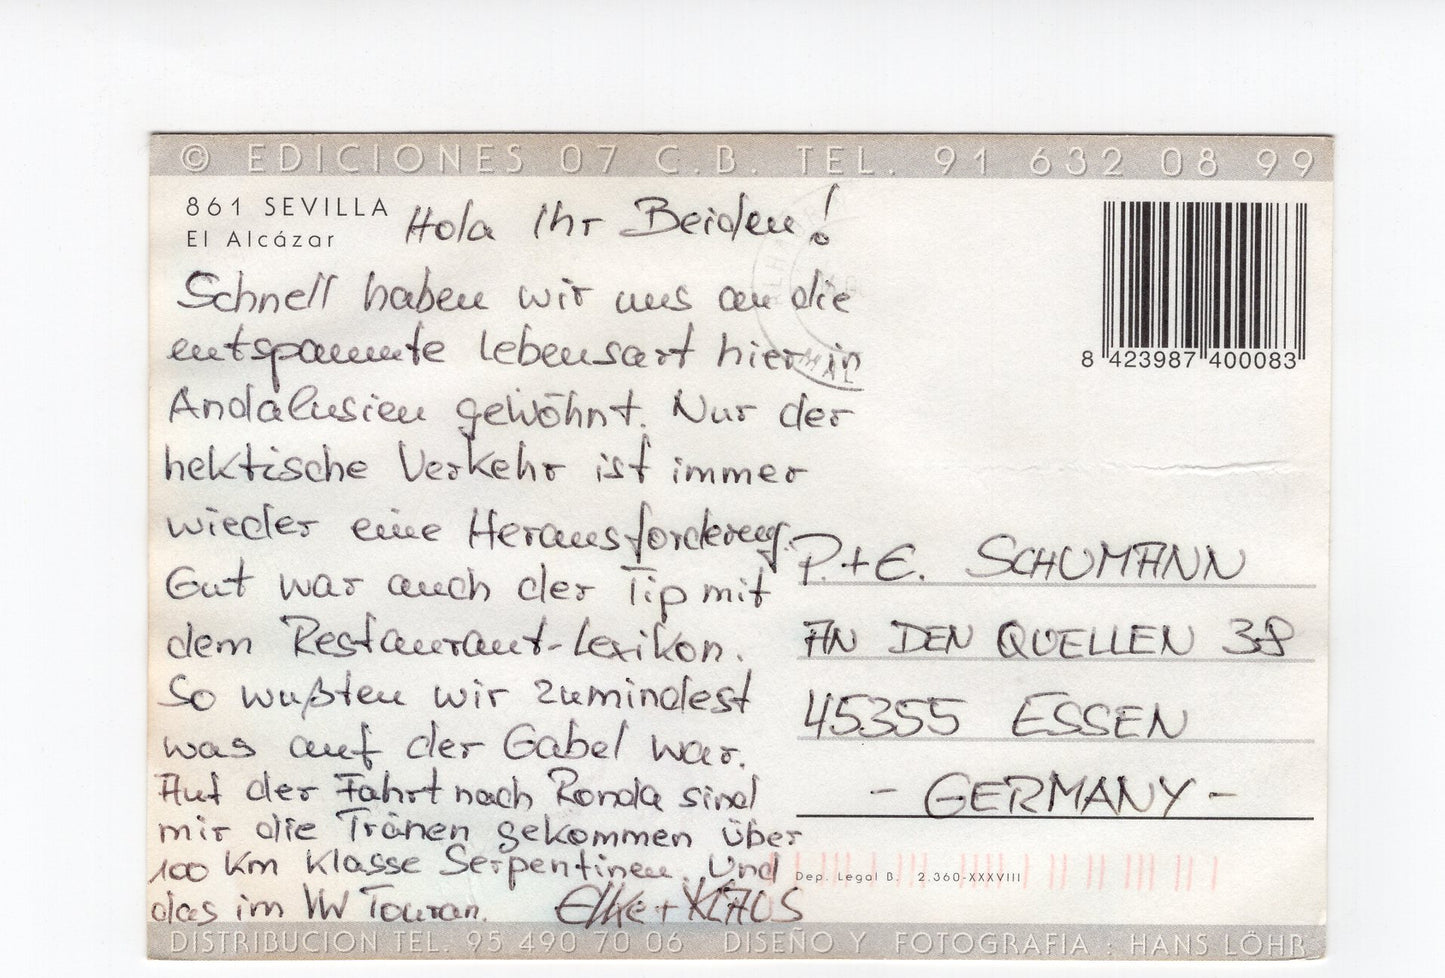 © EDICIONES 07 C.B. TEL. 91 632 08 99
861 SEVILLA
El Alcázar
Hola Ihr Beiden!
Schnell haben wir uns an die
entspannte Lebensart hier in
Andalusien gewöhnt. Nur der
hektische Verkehr ist immer
wieder eine Herausforderung.
Gut war auch der Tip mit
dem Restaurant-Lexikon.
So wußten wir zumindest
was auf der Gabel war.
Auf der Fahrt nach Ronda sind
mir die Tränen gekommen über
100 Km Klasse Serpentinen. Und
das im VW Touran.
Elke + KLAUS
8 423987 400083
P. + E. SCHUMANN
AN DEN QUELLEN 38
45355 ESSEN
- GERMANY -
Dep. Legal B. 2.360-XXXVIII
DISTRIBUCION TEL. 95 490 70 06 DISEÑO Y FOTOGRAFIA : HANS LÖHR